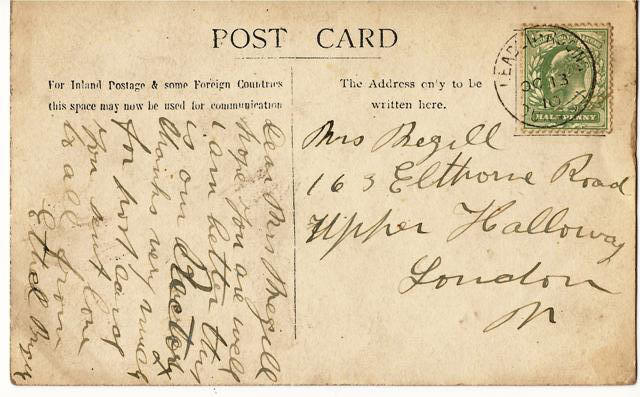 POST CARD
For Inland Postage & some Foreign Countries
this space may now be used for communication
The Address only to be
written here.
HALFPENNY
OC 13
10
Dear Mrs Pregill
hope you are well
I am better this
is our Doctor
thanks very much
for post card
you sent love
to all from
Ethel
Mrs Pregill
163 Elthorne Road
Upper Halloway
London
N